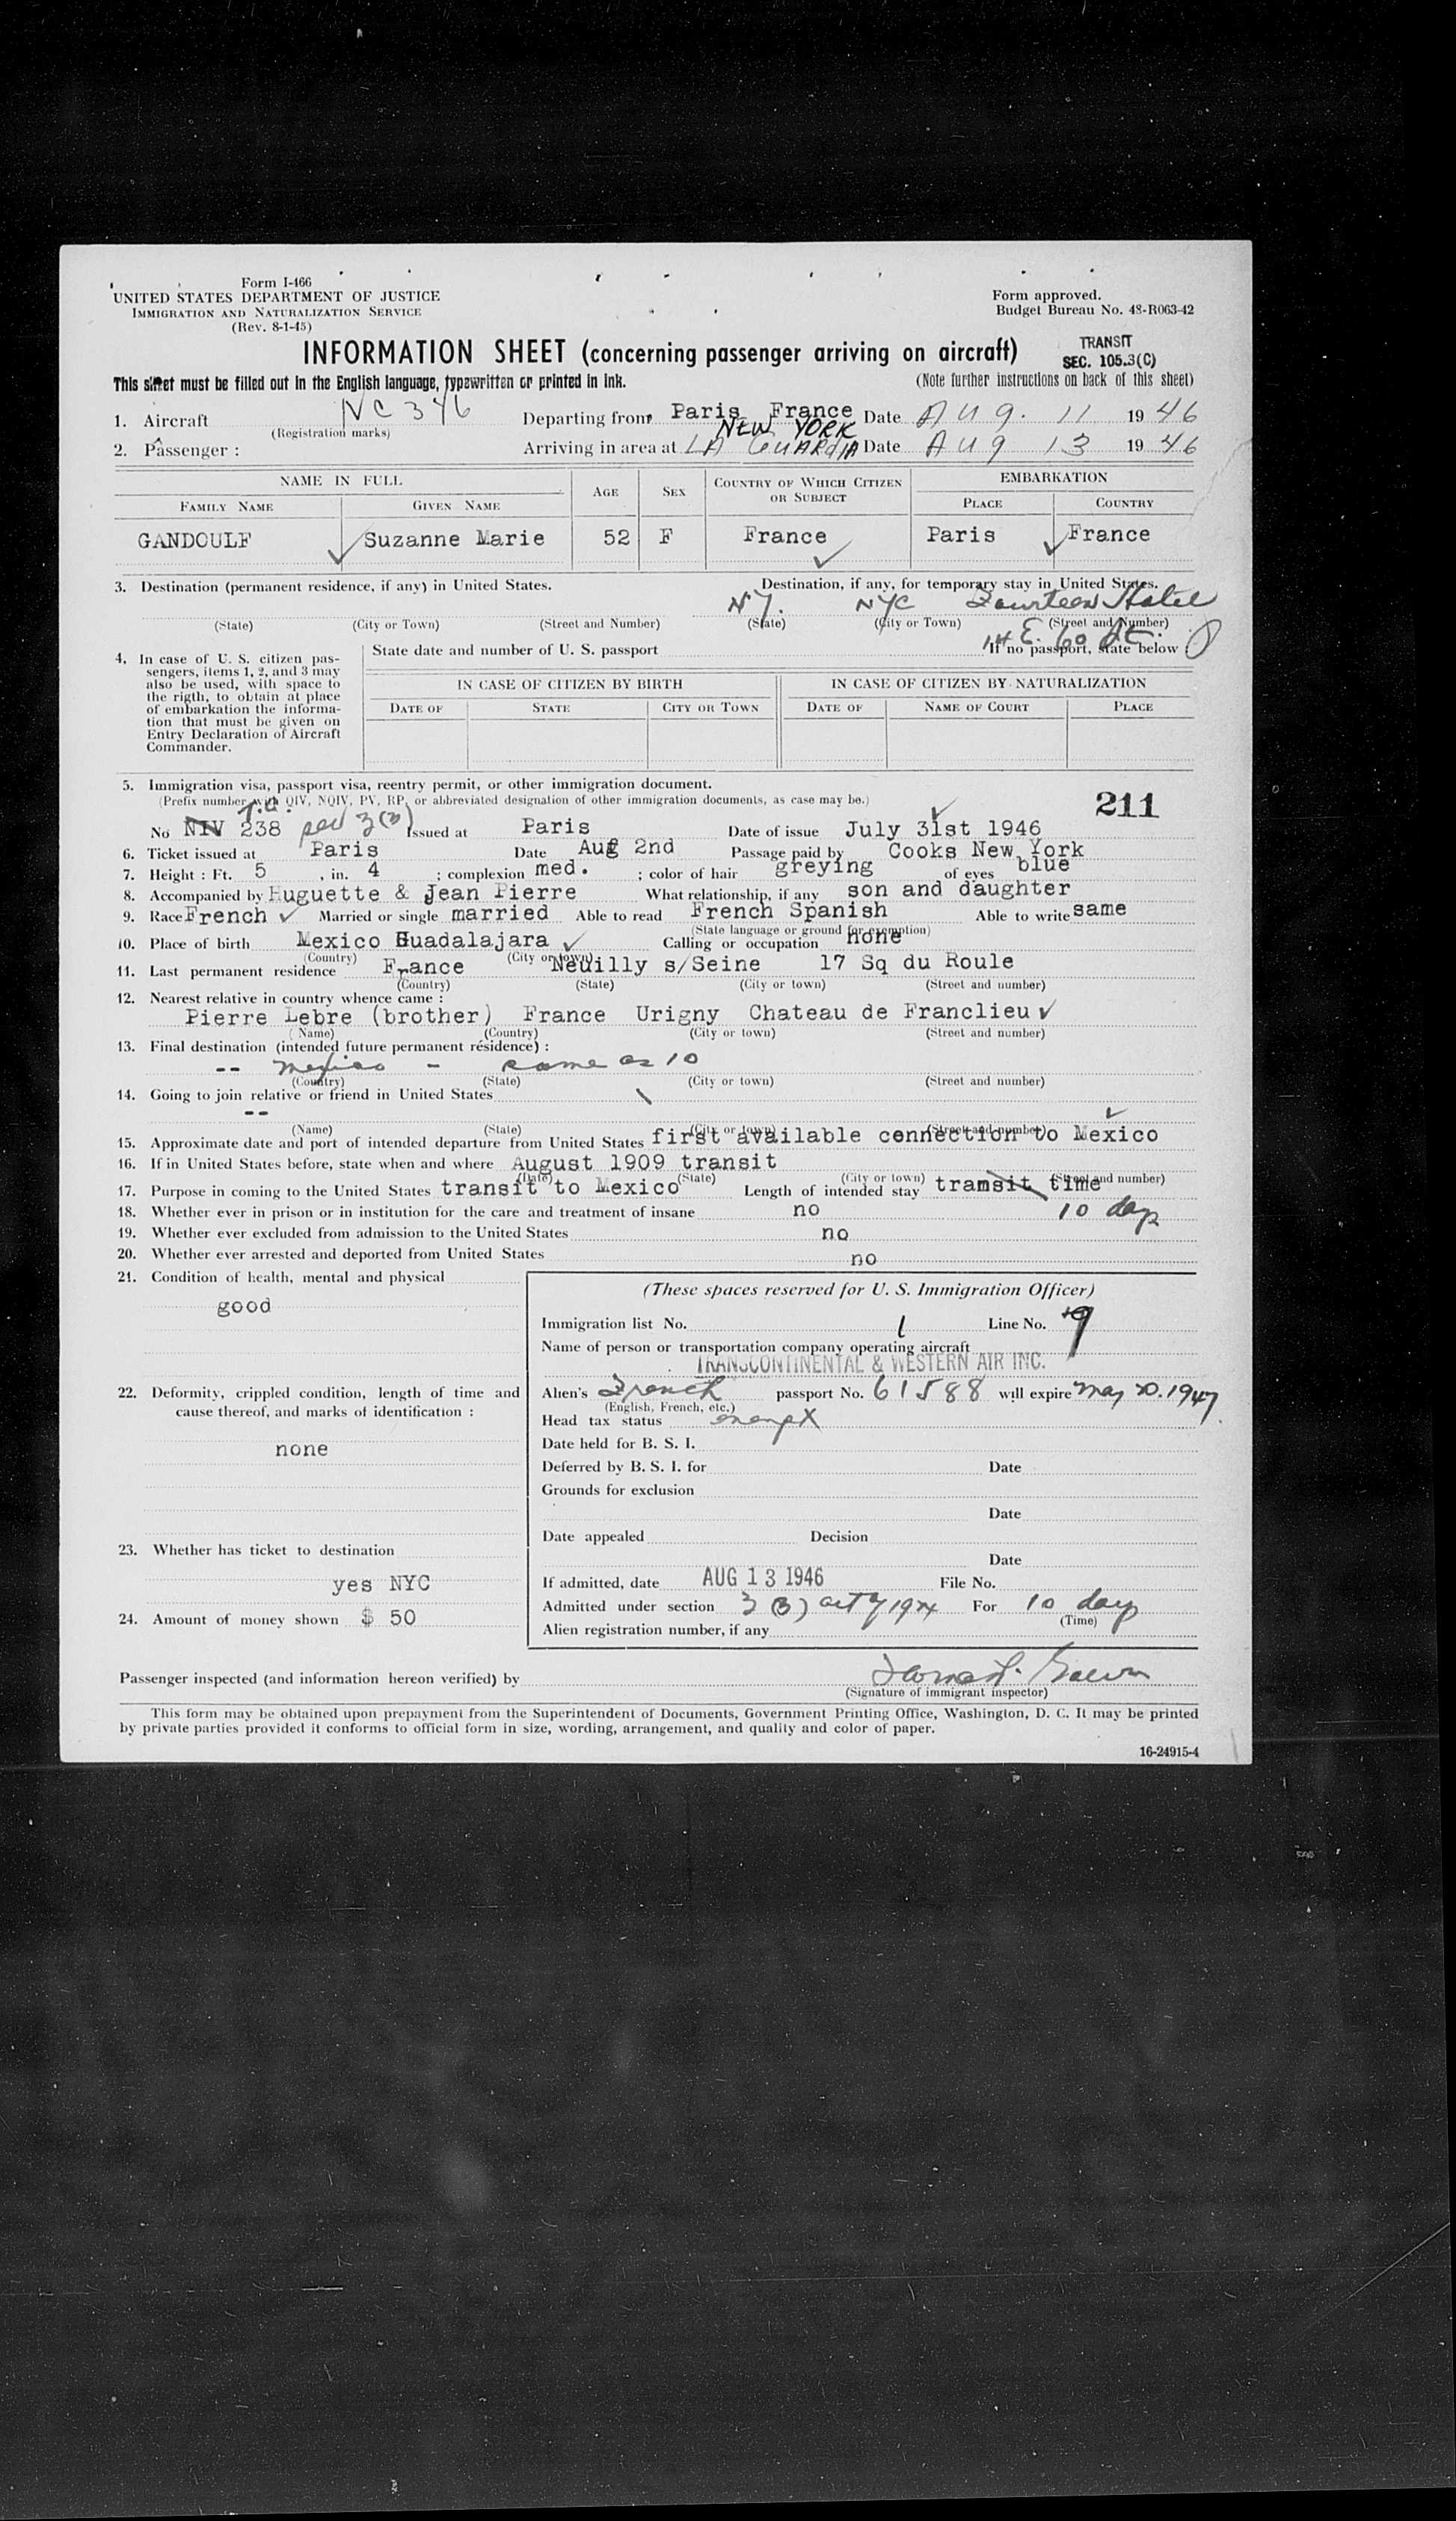 Form I-466
UNITED STATES DEPARTMENT OF JUSTICE
IMMIGRATION AND NATURALIZATION SERVICE
(Rev. 8-1-45)
Form approved.
Budget Bureau No. 43-R063-42
INFORMATION SHEET (concerning passenger arriving on aircraft)
TRANSIT
SEC. 105.3(C)
This sheet must be filled out in the English language, typewritten or printed in ink.
(Note further instructions on back of this sheet)
1. Aircraft NC 346 Departing from Paris France Date Aug. 11 1946
(Registration marks)
2. Passenger : Arriving in area at NEW YORK LA GUARDIA Date Aug 13 1946
NAME IN FULL AGE SEX COUNTRY OF WHICH CITIZEN OR SUBJECT EMBARKATION
FAMILY NAME GIVEN NAME PLACE COUNTRY
GANDOULF Suzanne Marie 52 F France Paris France
3. Destination (permanent residence, if any) in United States. Destination, if any, for temporary stay in United States.
NY. NYC Fourteen Hotel
(State) (City or Town) (Street and Number) (State) (City or Town) (Street and Number)
14 E. 60 St.
4. In case of U. S. citizen pas-
sengers, items 1, 2, and 3 may
also be used, with space to
the rigth, to obtain at place
of embarkation the informa-
tion that must be given on
Entry Declaration of Aircraft
Commander.
State date and number of U. S. passport If no passport, state below
IN CASE OF CITIZEN BY BIRTH IN CASE OF CITIZEN BY NATURALIZATION
DATE OF STATE CITY OR TOWN DATE OF NAME OF COURT PLACE
5. Immigration visa, passport visa, reentry permit, or other immigration document.
(Prefix number with QIV, NQIV, PV, RP, or abbreviated designation of other immigration documents, as case may be.)
211
No NIV 238 3(3) Issued at Paris Date of issue July 31st 1946
6. Ticket issued at Paris Date Aug 2nd Passage paid by Cooks New York
7. Height : Ft. 5 , in. 4 ; complexion med. ; color of hair greying of eyes blue
8. Accompanied by Huguette & Jean Pierre What relationship, if any son and daughter
9. Race French Married or single married Able to read French Spanish Able to write same
(State language or ground for exemption)
10. Place of birth Mexico Guadalajara Calling or occupation none
(Country) (City or town)
11. Last permanent residence France Neuilly s/Seine 17 Sq du Roule
(Country) (State) (City or town) (Street and number)
12. Nearest relative in country whence came :
Pierre Lebre (brother) France Urigny Chateau de Franclieu
(Name) (Country) (City or town) (Street and number)
13. Final destination (intended future permanent résidence) :
-- Mexico - same as 10
(Country) (State) (City or town) (Street and number)
14. Going to join relative or friend in United States
--
(Name) (State) (City or town) (Street and number)
15. Approximate date and port of intended departure from United States first available connection to Mexico
16. If in United States before, state when and where August 1909 transit
(Date) (State) (City or town) (Street and number)
17. Purpose in coming to the United States transit to Mexico Length of intended stay transit time
18. Whether ever in prison or in institution for the care and treatment of insane no 10 days
19. Whether ever excluded from admission to the United States no
20. Whether ever arrested and deported from United States no
21. Condition of health, mental and physical
good
22. Deformity, crippled condition, length of time and
cause thereof, and marks of identification :
none
23. Whether has ticket to destination
yes NYC
24. Amount of money shown $ 50
(These spaces reserved for U. S. Immigration Officer)
Immigration list No. 1 Line No. 9
Name of person or transportation company operating aircraft
TRANSCONTINENTAL & WESTERN AIR INC.
Alien's French passport No. 61588 will expire May 20. 1947
(English, French, etc.)
Head tax status exempt
Date held for B. S. I.
Deferred by B. S. I. for Date
Grounds for exclusion
Date
Date appealed Decision
Date
If admitted, date AUG 13 1946 File No.
Admitted under section 3 (3) act of 1924 For 10 days
(Time)
Alien registration number, if any
Passenger inspected (and information hereon verified) by
(Signature of immigrant inspector)
This form may be obtained upon prepayment from the Superintendent of Documents, Government Printing Office, Washington, D. C. It may be printed
by private parties provided it conforms to official form in size, wording, arrangement, and quality and color of paper.
16-24915-4